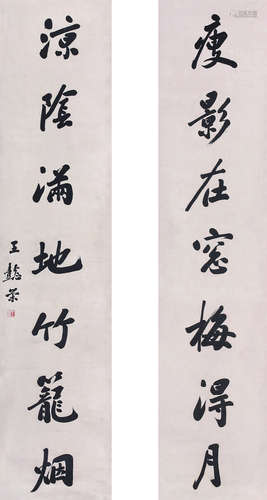 瘦影在窓梅得月
涼陰滿地竹籠烟
王懿榮